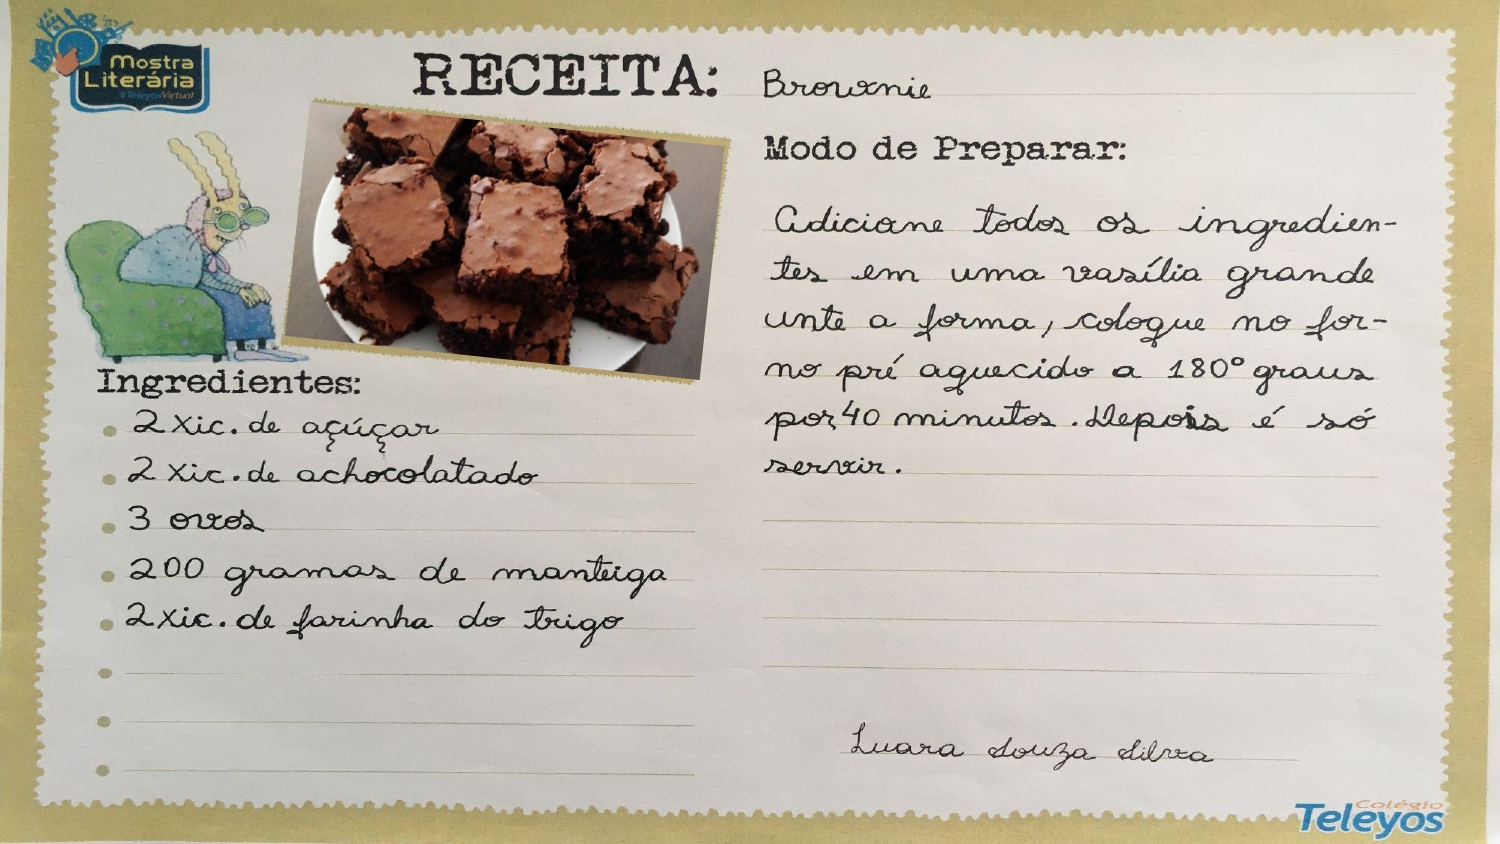 Mostra
Literária
#TeleyosVirtual
RECEITA: Brownie
Ingredientes:
2 xic. de açúçar
2 xic. de achocolatado
3 ovos
200 gramas de manteiga
2 xic. de farinha do trigo
Modo de Preparar:
Adicione todos os ingredien-
tes em uma vasília grande
unte a forma, coloque no for-
no pré aquecido a 180° graus
por 40 minutos. Depois é só
servir.
Luara Souza Silva
Colégio
Teleyos